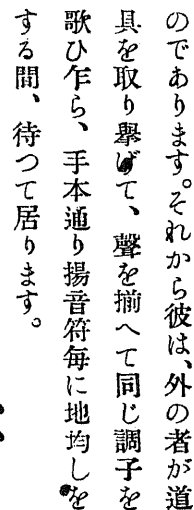 のであります。それから彼は、外の者が道
具を取り擧げて、聲を揃へて同じ調子を
歌ひ乍ら、手本通り揚音符毎に地均しを
する間、待つて居ります。